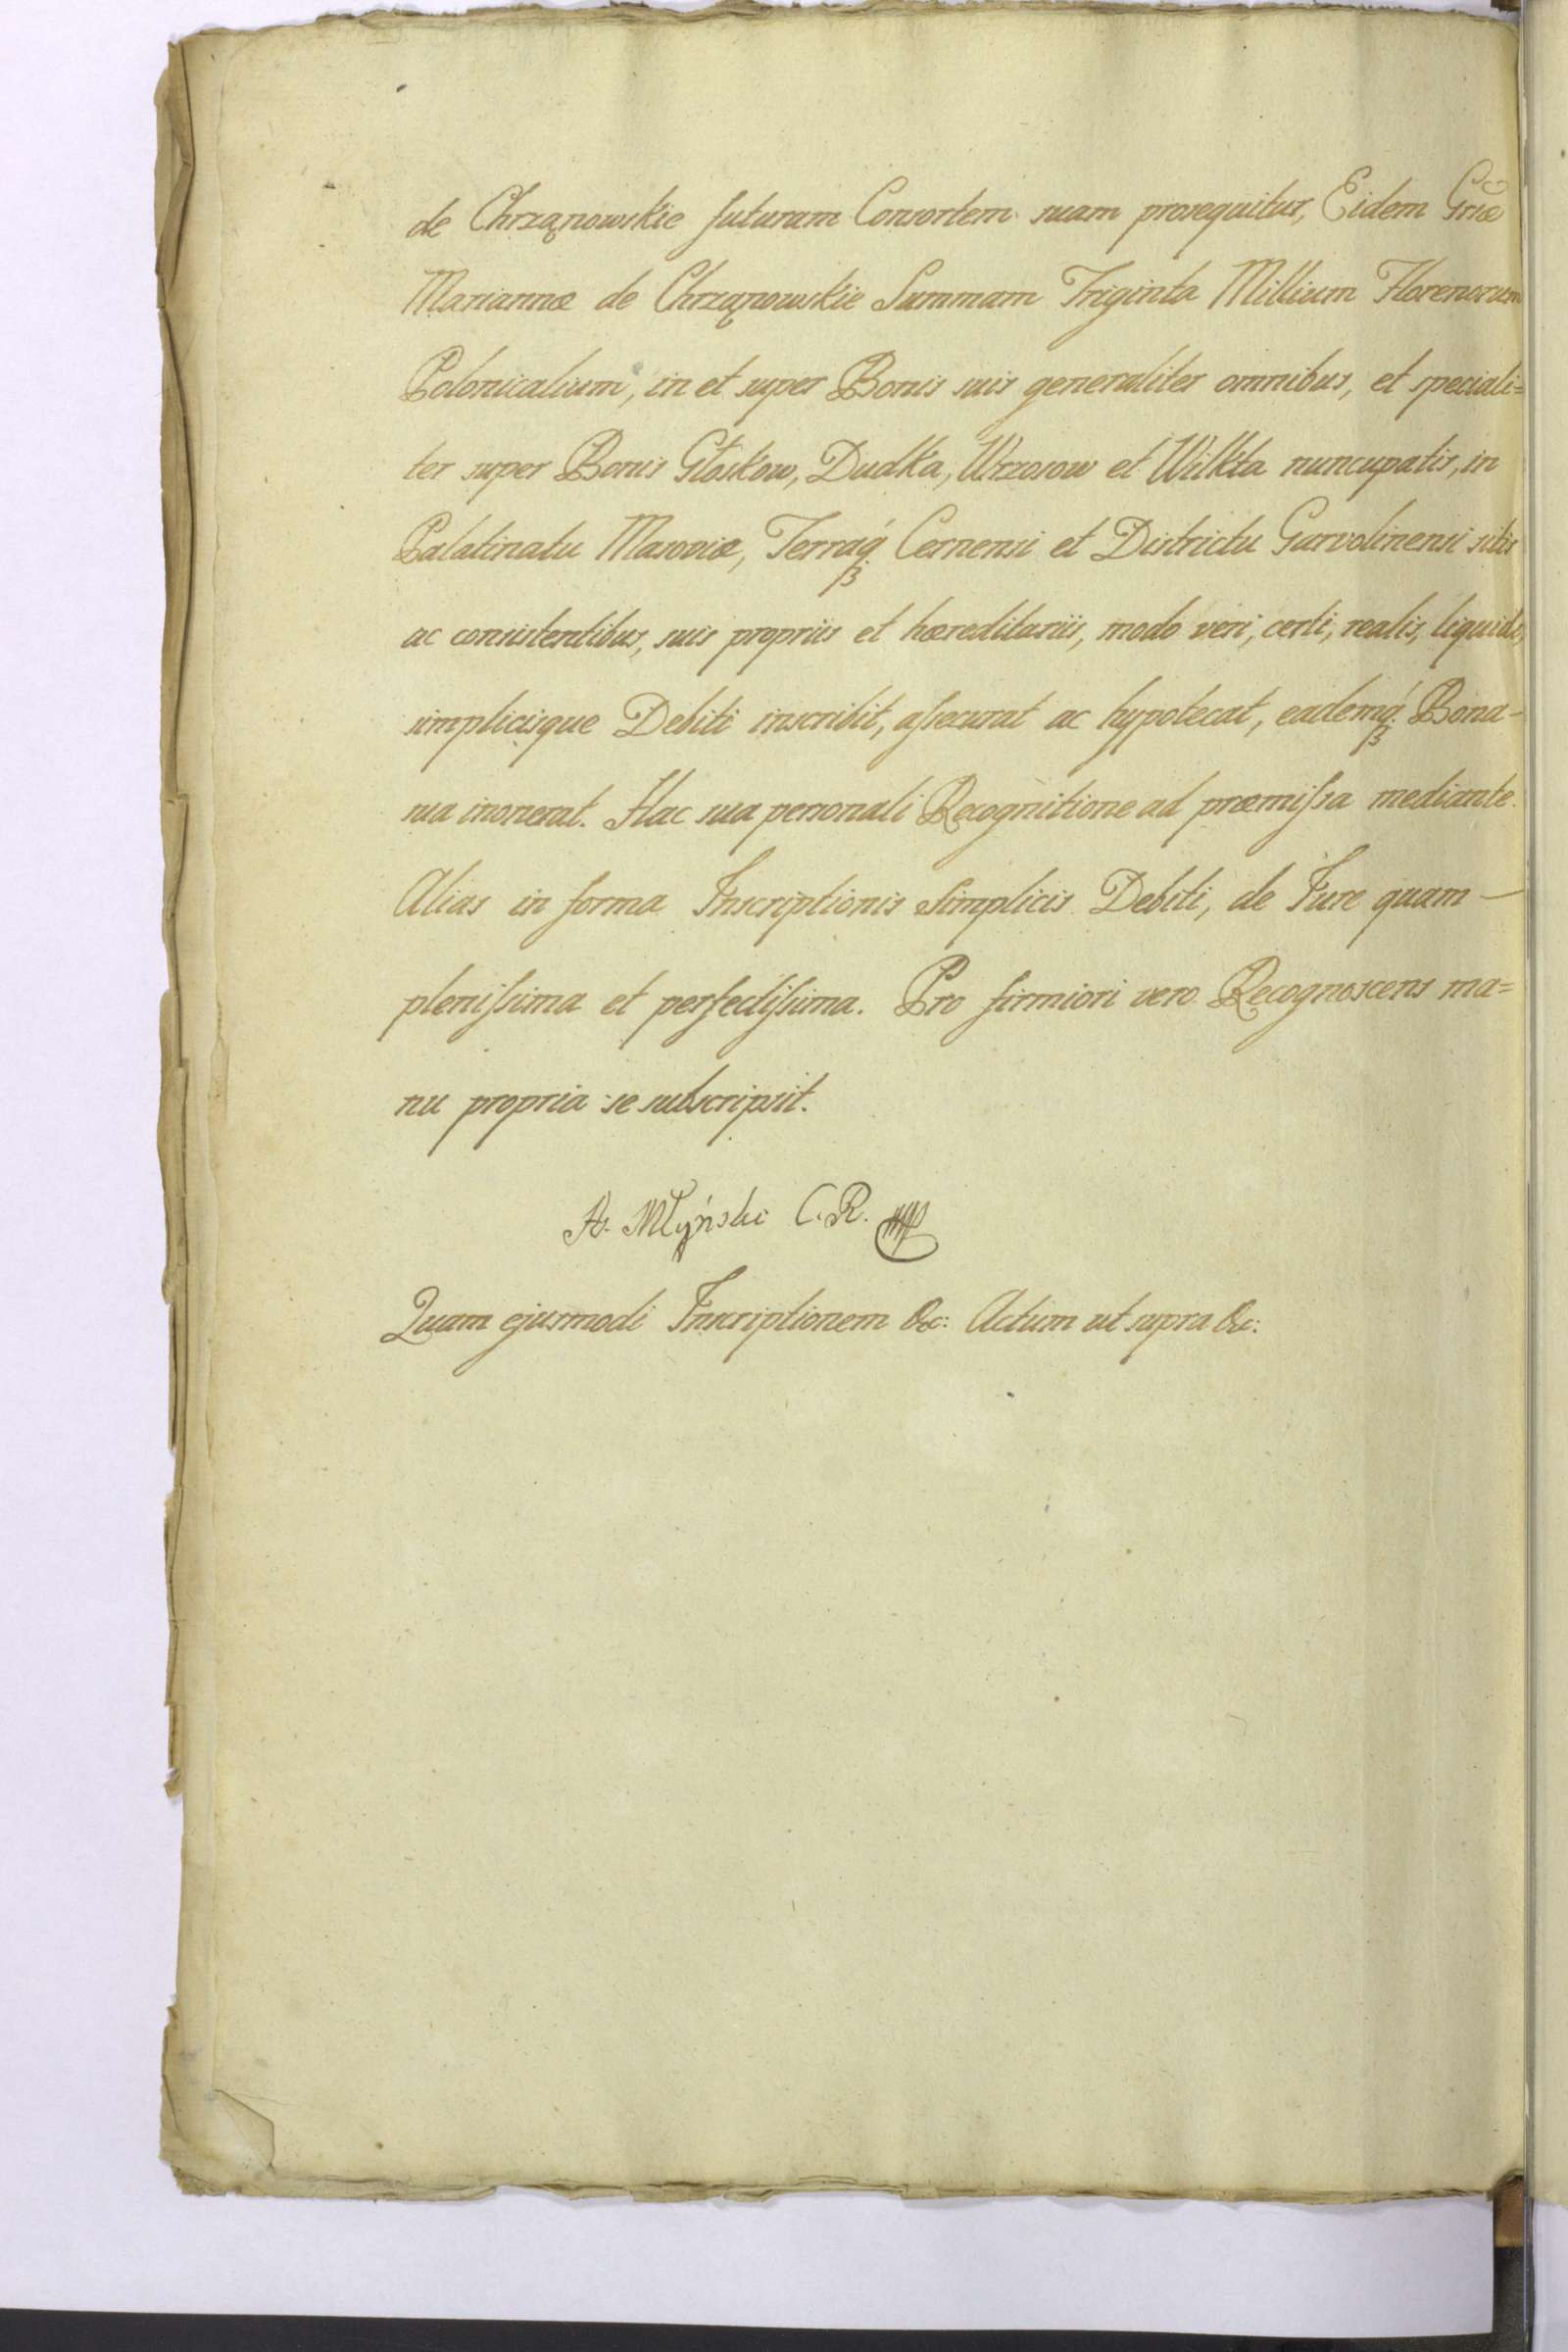 de Chrząnowskie futuram Consortem suam prosequitur, Eidem Grſæ
Mariannæ de Chrząnowskie Summam Triginta Millium Florenorum
Polonicalium, in et super Bonis suis generaliter omnibus, et speciali=
ter super Bonis Głoskow, Dudka, Wrzosow et Wilkta nuncupatis, in
Palatinatu Masoviæ, Terráq́ꝫ Cernensi et Districtu Garvolinensi sitis
ac consistentibus, suis propriis et hæreditariis, modo veri, certi, realis, liquidi,
simplicisque Debiti inscribit, aſsecurat ac hypotecat, eademq́ꝫ Bona-
sua inonerat. Hac sua personali Recognitione ad præmiſsa mediante.
Alias in forma Inscriptionis Simplicis Debiti, de Jure quam-
pleniſsima et perfectiſsima. Pro firmiori vero Recognoscens ma=
nu propria se subscripsit.
A. Młyński C. R. mp
Quam ejusmodi Inscriptionem &c: Actum ut supra &c: